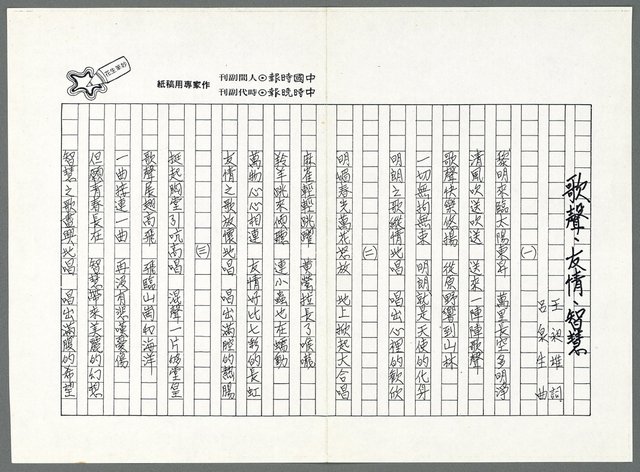 中國時報⊙人間副刊
中時晚報⊙時代副刊
作家專用稿紙
歌聲、友情、智慧
王昶雄 詞
呂泉生 曲
(一)
黎明來臨太陽東昇 萬里長空多明淨
清風吹送吹送 送來一陣陣歌聲
歌聲快樂悠揚 從原野響到山林
一切無拘無束 明朗就是天使的化身
明朗之歌縱情地唱 唱出心裡的歡欣
(二)
明媚春光萬花怒放 地上掀起大合唱
麻雀輕輕跳躍 黃鶯拉長了喉嚨
羚羊跳來傾聽 連小蟲也在蠕動
萬物心心相連 友情好比七彩的長虹
友情之歌放懷地唱 唱出滿腔的熱腸
(三)
挺起胸堂引吭高唱 混聲一片伤堂皇
歌聲展翅高飛 飛臨山崗和海洋
一曲接連一曲 再沒有悲嘆憂傷
但願青春長在 智慧帶來美麗的幻想
智慧之歌盡興地唱 唱出滿腹的希望